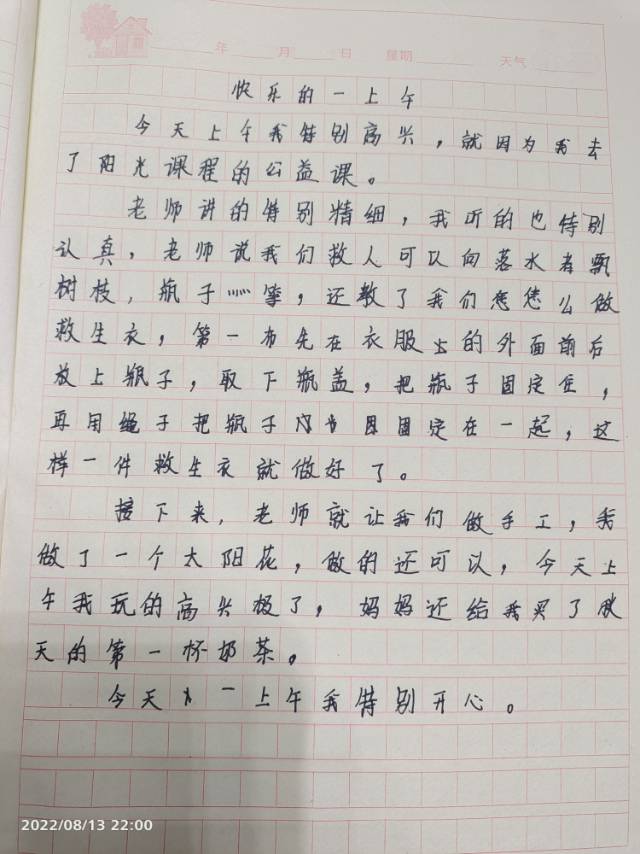 年 月 日 星期 天气
快乐的一上午
今天上午我特别高兴，就因为我去
了阳光课程的公益课。
老师讲的特别精细，我听的也特别
认真，老师说我们救人可以向落水者飘
树枝，瓶子……等，还教了我们怎么做
救生衣，第一布先在衣服上的外面前后
放上瓶子，取下瓶盖，把瓶子固定住，
再用绳子把瓶子固定在一起，这
样一件救生衣就做好了。
接下来，老师就让我们做手工，我
做了一个太阳花，做的还可以，今天上
午我玩的高兴极了，妈妈还给我买了秋
天的第一杯奶茶。
今天一上午我特别开心。
2022/08/13 22:00